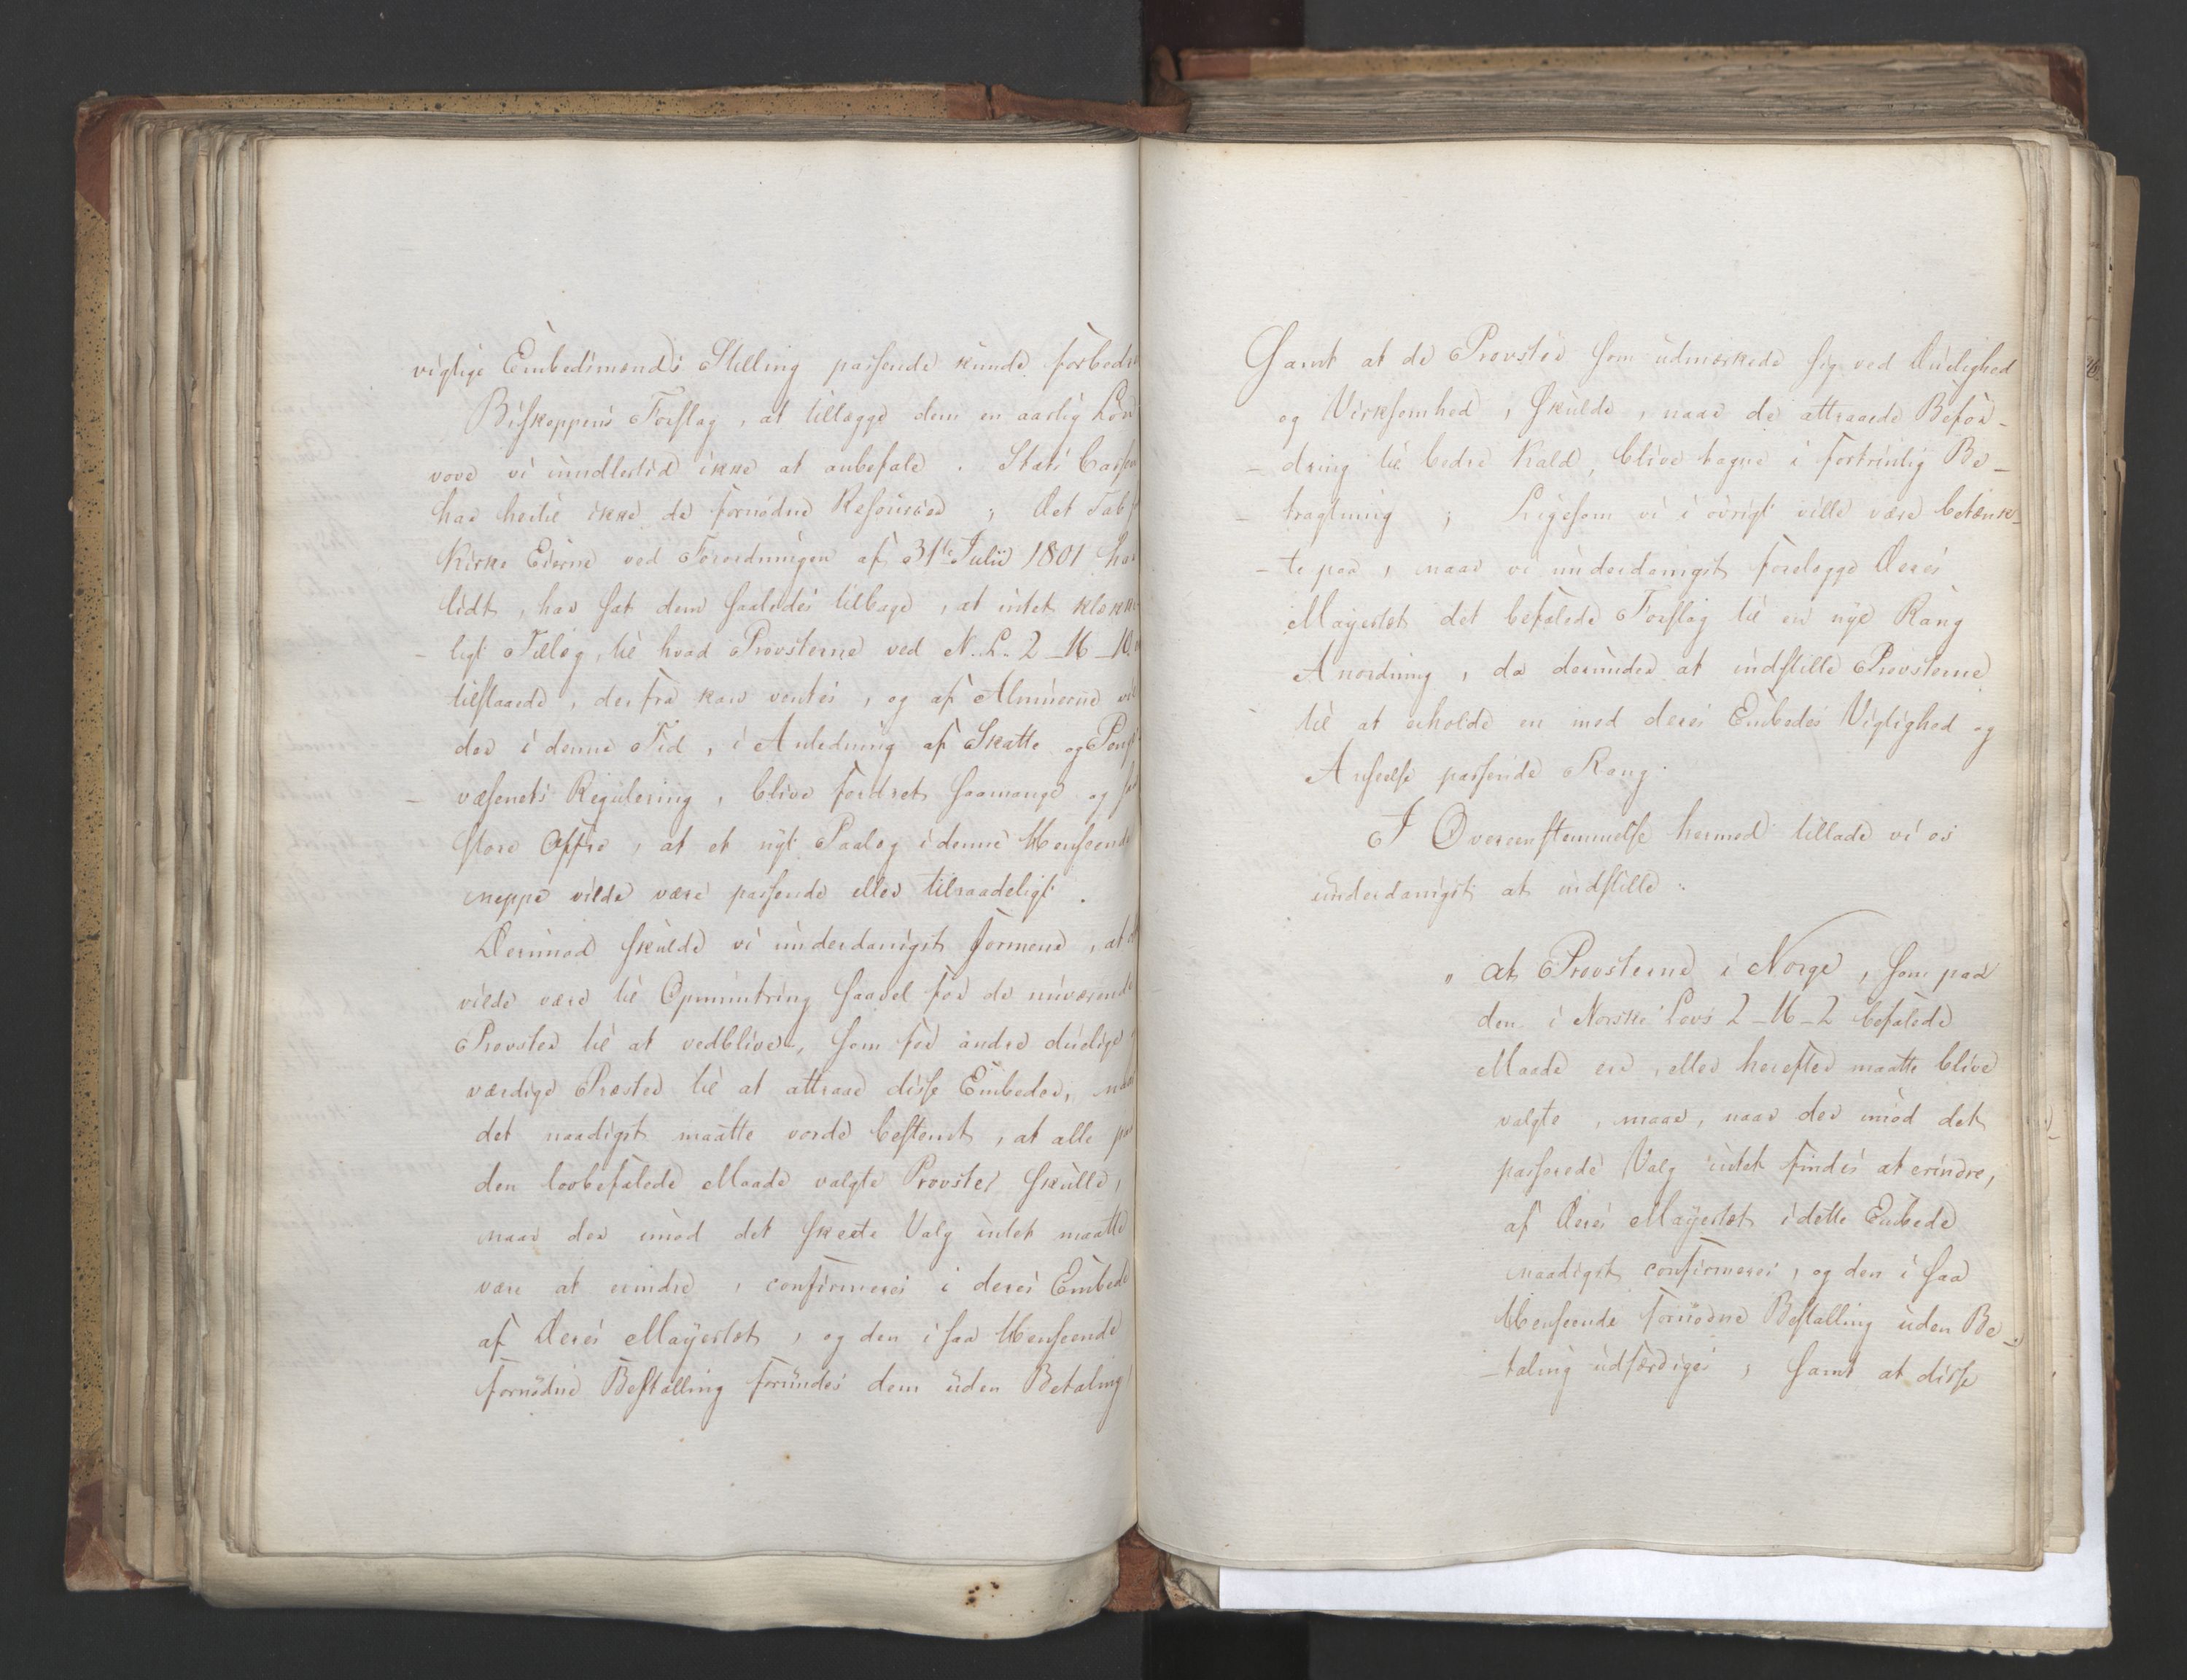 vigtige Embedsmænds Stilling passende kunde forbedre
Biskoppens Forslag, at tillægge dem en aarlig Løn
vove vi imidlertid ikke at anbefale. Stats Cassen
har hertil ikke de fornødne Resourcer; Det Tab
Kirke Eierne ved Forordningen af 31te Julii 1801 har
lidt, har sat dem saaledes tilbage, at intet klække
- ligt Tillæg, til hvad Provsterne ved N. L. 2-16-10
tilstaaede, derfra kan ventes, og af Almuerne vil
der i denne Tid, i Anledning af Skatte og Penge
- væsenets Regulering, blive fordret saamange og saa
store Offre, at et nyt Paalæg i denne Henseende
neppe vilde være passende eller tilraadeligt.
Derimod skulde vi underdanigst formene, at det
vilde være til Opmuntring saavel for de nuværende
Provster til at vedblive, som for andre duelige
værdige Præster til at attraae disse Embeder, naar
det naadigst maatte vorde bestemt, at alle paa
den lovbefalede Maade valgte Provster skulle,
naar der imod det skeete Valg intet maatte
være at erindre, confirmeres i deres Embede
af Deres Mayestæt, og den i saa Henseende
fornødne Bestalling forundes dem uden Betaling
Samt at de Provster som udmærkede sig ved Duelighed
og Virksomhed, skulde, naar de attraaede Befor-
- dring til bedre Kald, blive tagne i fortrinlig Be-
- tragtning; Ligesom vi i øvrigt ville være betænk-
- te paa, naar vi underdanigst forelægge Deres
Mayestæt det befalede Forslag til en nye Rang
Anordning, da derunder at indstille Provsterne
til at erholde en med deres Embedes Vigtighed og
Anseelse passende Rang.
I Overeensstemmelse hermed tillade vi os
underdanigst at indstille:
" at Provsterne i Norge, som paa
den i Norske Lovs 2-16-2 befalede
Maade ere, eller herefter maatte blive
valgte, maae, naar der imod det
passerede Valg intet findes at erindre,
af Deres Mayestæt i dette Embede
naadigst confirmeres, og den i saa
Henseende fornødne Bestalling uden Be-
- taling udfærdiges; samt at disse